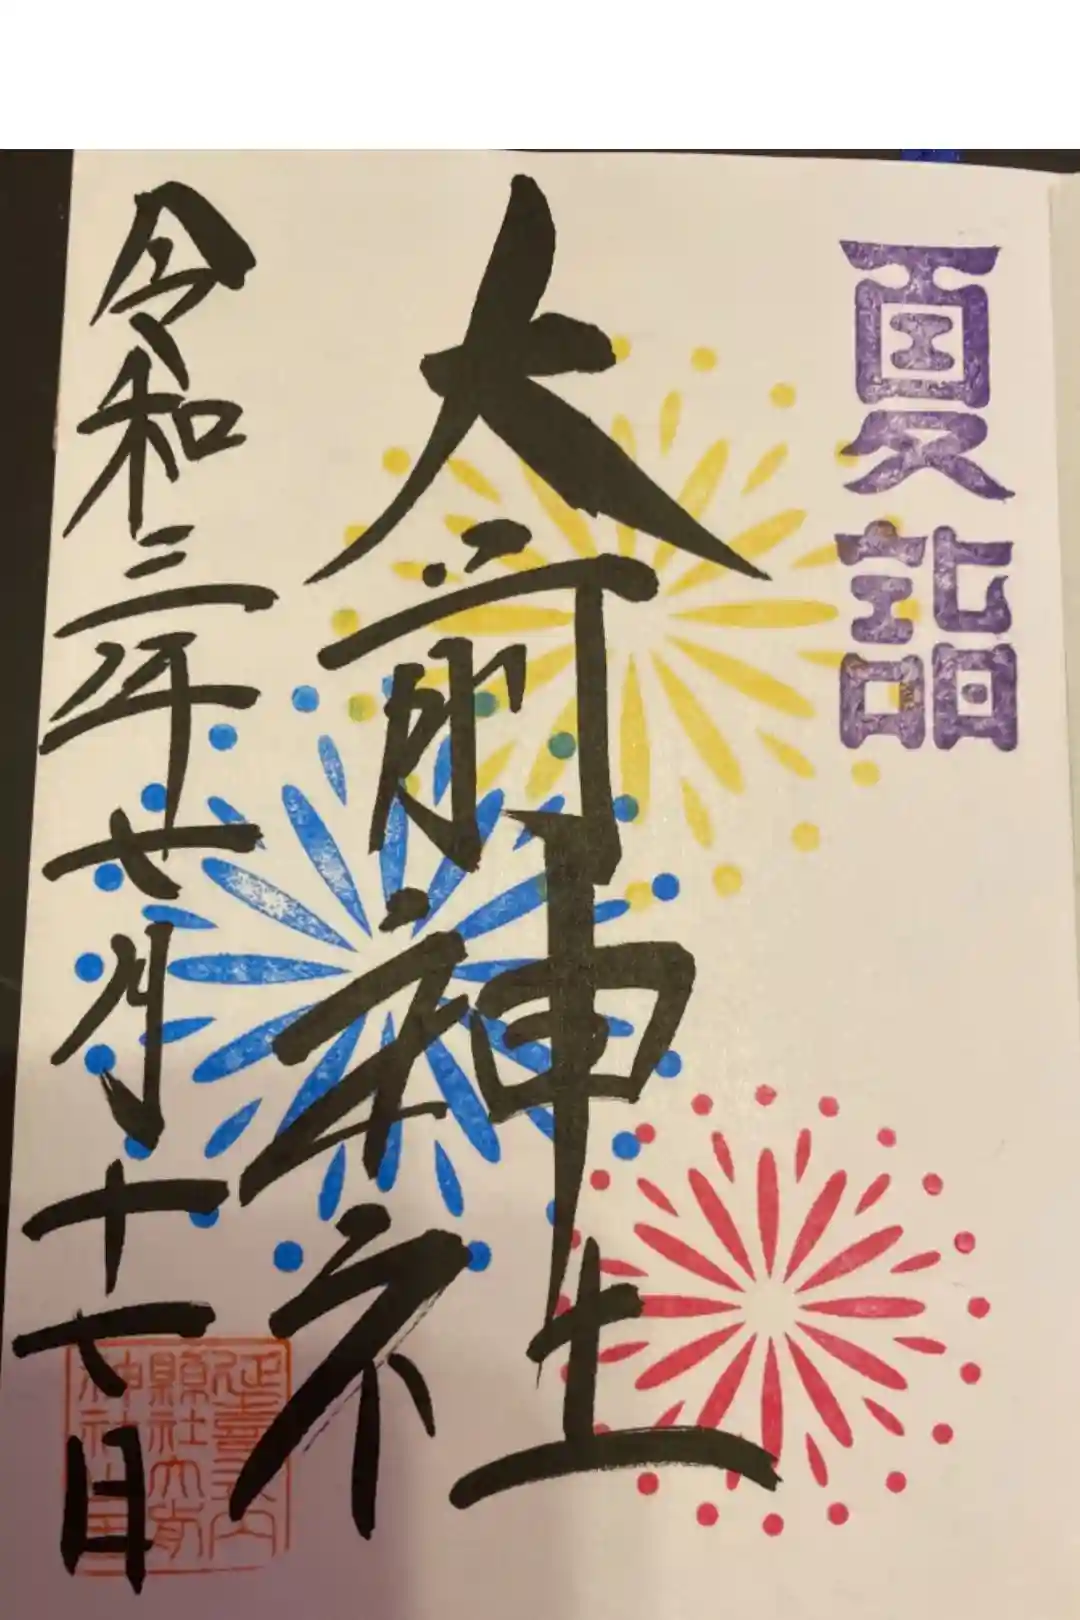 夏詣
大前神社
令和三年七月十七日
延喜式内
縣社大前
神社